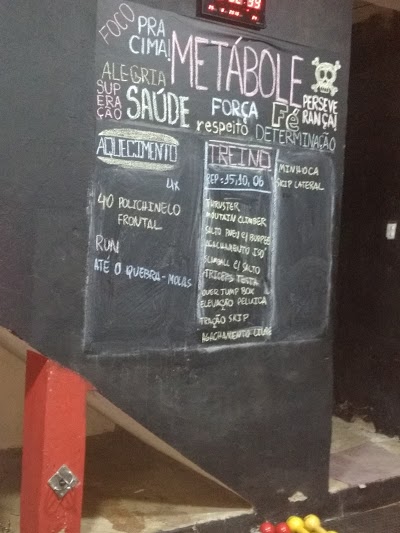 FOCO
PRA
CIMA!
METÁBOLE
ALEGRIA
SUPERAÇÃO
SAÚDE
FORÇA
Fé
PERSEVERANÇA!
respeito
DETERMINAÇÃO
AQUECIMENTO
4X
40 POLICHINELO
FRONTAL
RUN
ATÉ O QUEBRA-MOLAS
TREINO
REP: 15, 10, 06
THRUSTER
MOUTAIN CLIMBER
SALTO PNEU C/ BURPEE
AGACHAMENTO ISO
SLAMBALL C/ SALTO
TRICEPS TESTA
OVER JUMP BOX
ELEVAÇÃO PELVICA
TRAÇÃO SKIP
AGACHAMENTO LIVRE
MINHOCA
SKIP LATERAL